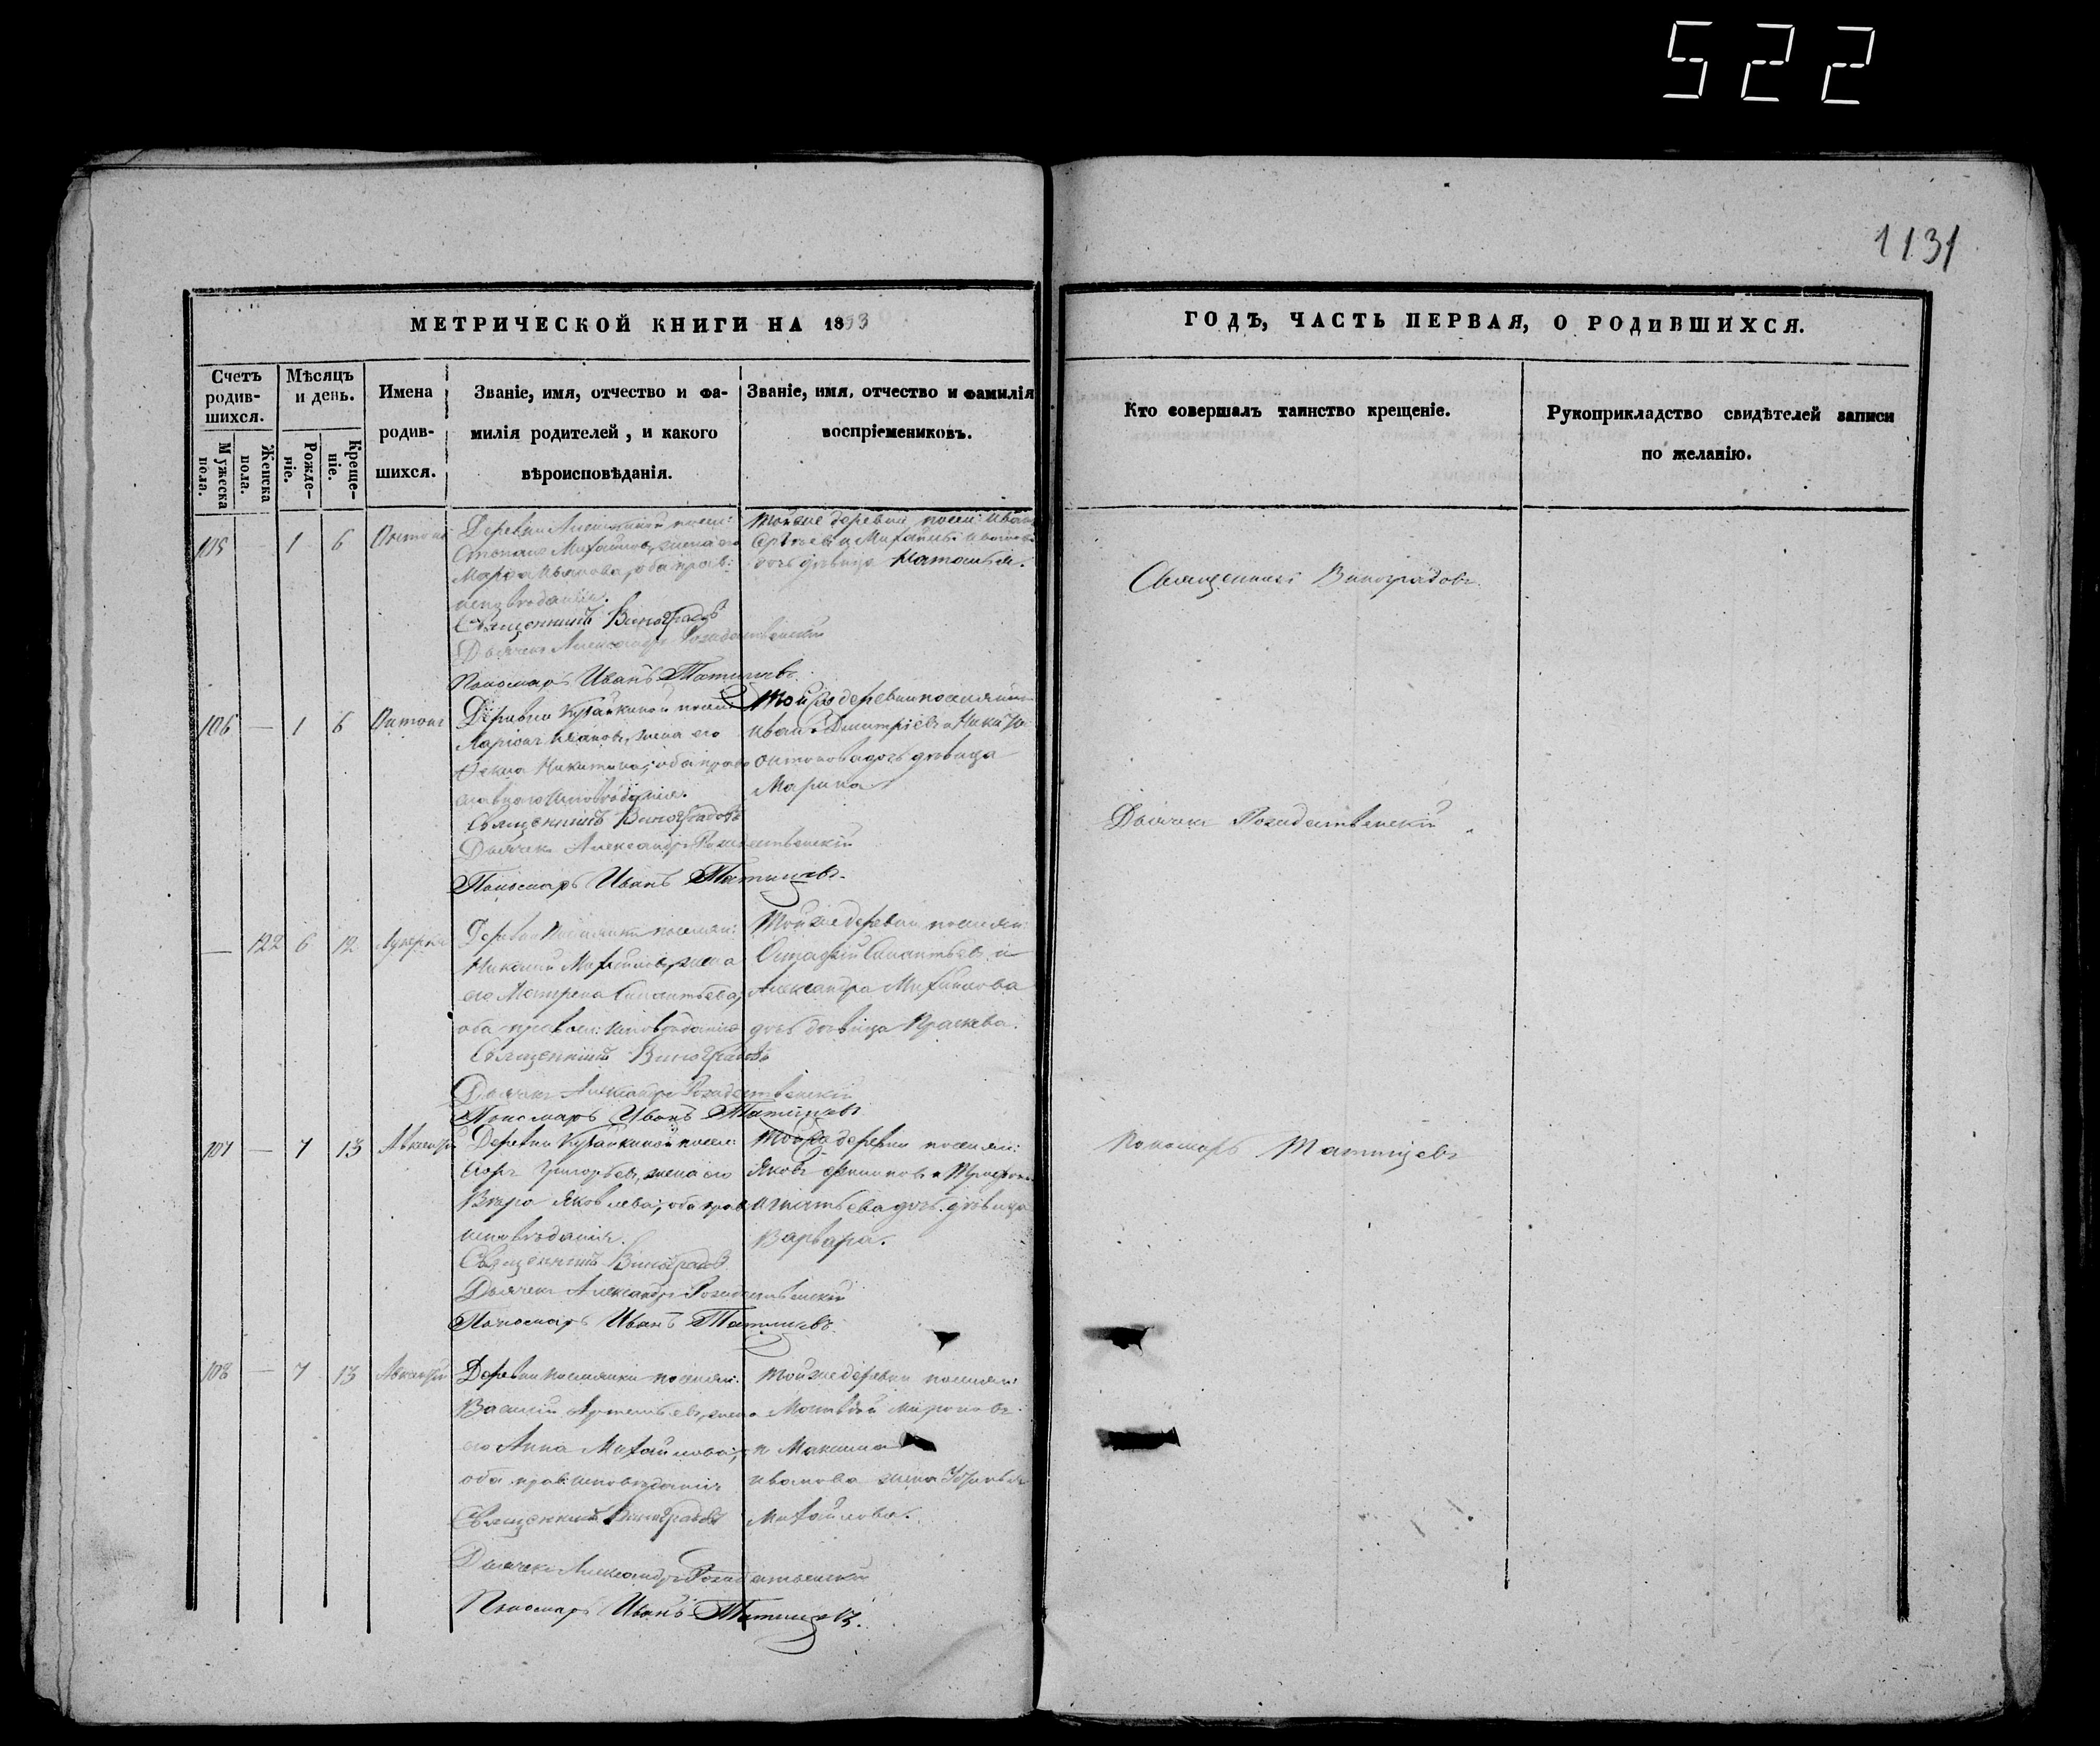 522
1131
МЕТРИЧЕСКОЙ КНИГИ НА 1853
ГОДЪ, ЧАСТЬ ПЕРВАЯ, О РОДИВШИХСЯ.
Счетъ родив-шихся.
Мужеска пола.
Женска пола.
Мѣсяцъ и день.
Рожде-ніе.
Креще-ніе.
Имена
родив-
шихся.
Званіе, имя, отчество и фа-
милія родителей, и какого
вѣроисповѣданія.
Званіе, имя, отчество и фамилія
воспріемениковъ.
Кто совершалъ таинство крещеніе.
Рукоприкладство свидѣтелей записи
по желанію.
105 — 1 6 Онтонъ
Деревни посел:
Степанъ Михайловъ, жена его
Марфа оба прав:
исповѣданія.
Священникъ Виноградовъ
Дьячекъ Александръ Рождественскій
Пономарь Иванъ Татищевъ.
Той же деревни посел: Иванъ
Сергѣевъ и Михайлы Иванова
дочь дѣвица Наталья.
Священникъ Виноградовъ.
106 — 1 6 Онтонъ
Деревни посел:
Ларіонъ Ивановъ, жена его
Никитина, оба право
славнаго исповѣданія.
Священникъ Виноградовъ
Дьячекъ Александръ Рождественскій
Пономарь Иванъ Татищевъ.
Той же деревни поселянинъ
Иванъ Дмитріевъ и
онтонова дочь дѣвица
Марина
Дьячекъ Рождественскій
— 122 6 12 Лукерья
Деревни поселян:
Николай Михайловъ, жена
его Матрена оба правосл: исповѣданія
Священникъ Виноградовъ
Дьячекъ Александръ Рождественскій
Пономарь Иванъ Татищевъ
Той же деревни поселян:
и
Александра Михайлова
дочь дѣвица Прасковья.
107 — 7 13 Авксентій
Деревни посел:
Егоръ Григорьевъ, жена его
Вѣра Яковлева, оба прав
исповѣданія.
Священникъ Виноградовъ
Дьячекъ Александръ Рождественскій
Пономарь Иванъ Татищевъ.
Той же деревни поселян:
Яковъ и
Игнатьева дочь дѣвица
Варвара.
Пономарь Татищевъ
108 — 7 13 Авксентій
Деревни поселян:
Василій Артемьевъ, жена
его Анна Михайлова,
оба прав: исповѣданія
Священникъ Виноградовъ
Дьячекъ Александръ Рождественскій
Пономарь Иванъ Татищевъ.
Той же деревни поселян:
Матвѣй Мироновъ
и Максима
Иванова жена
Михайлова.